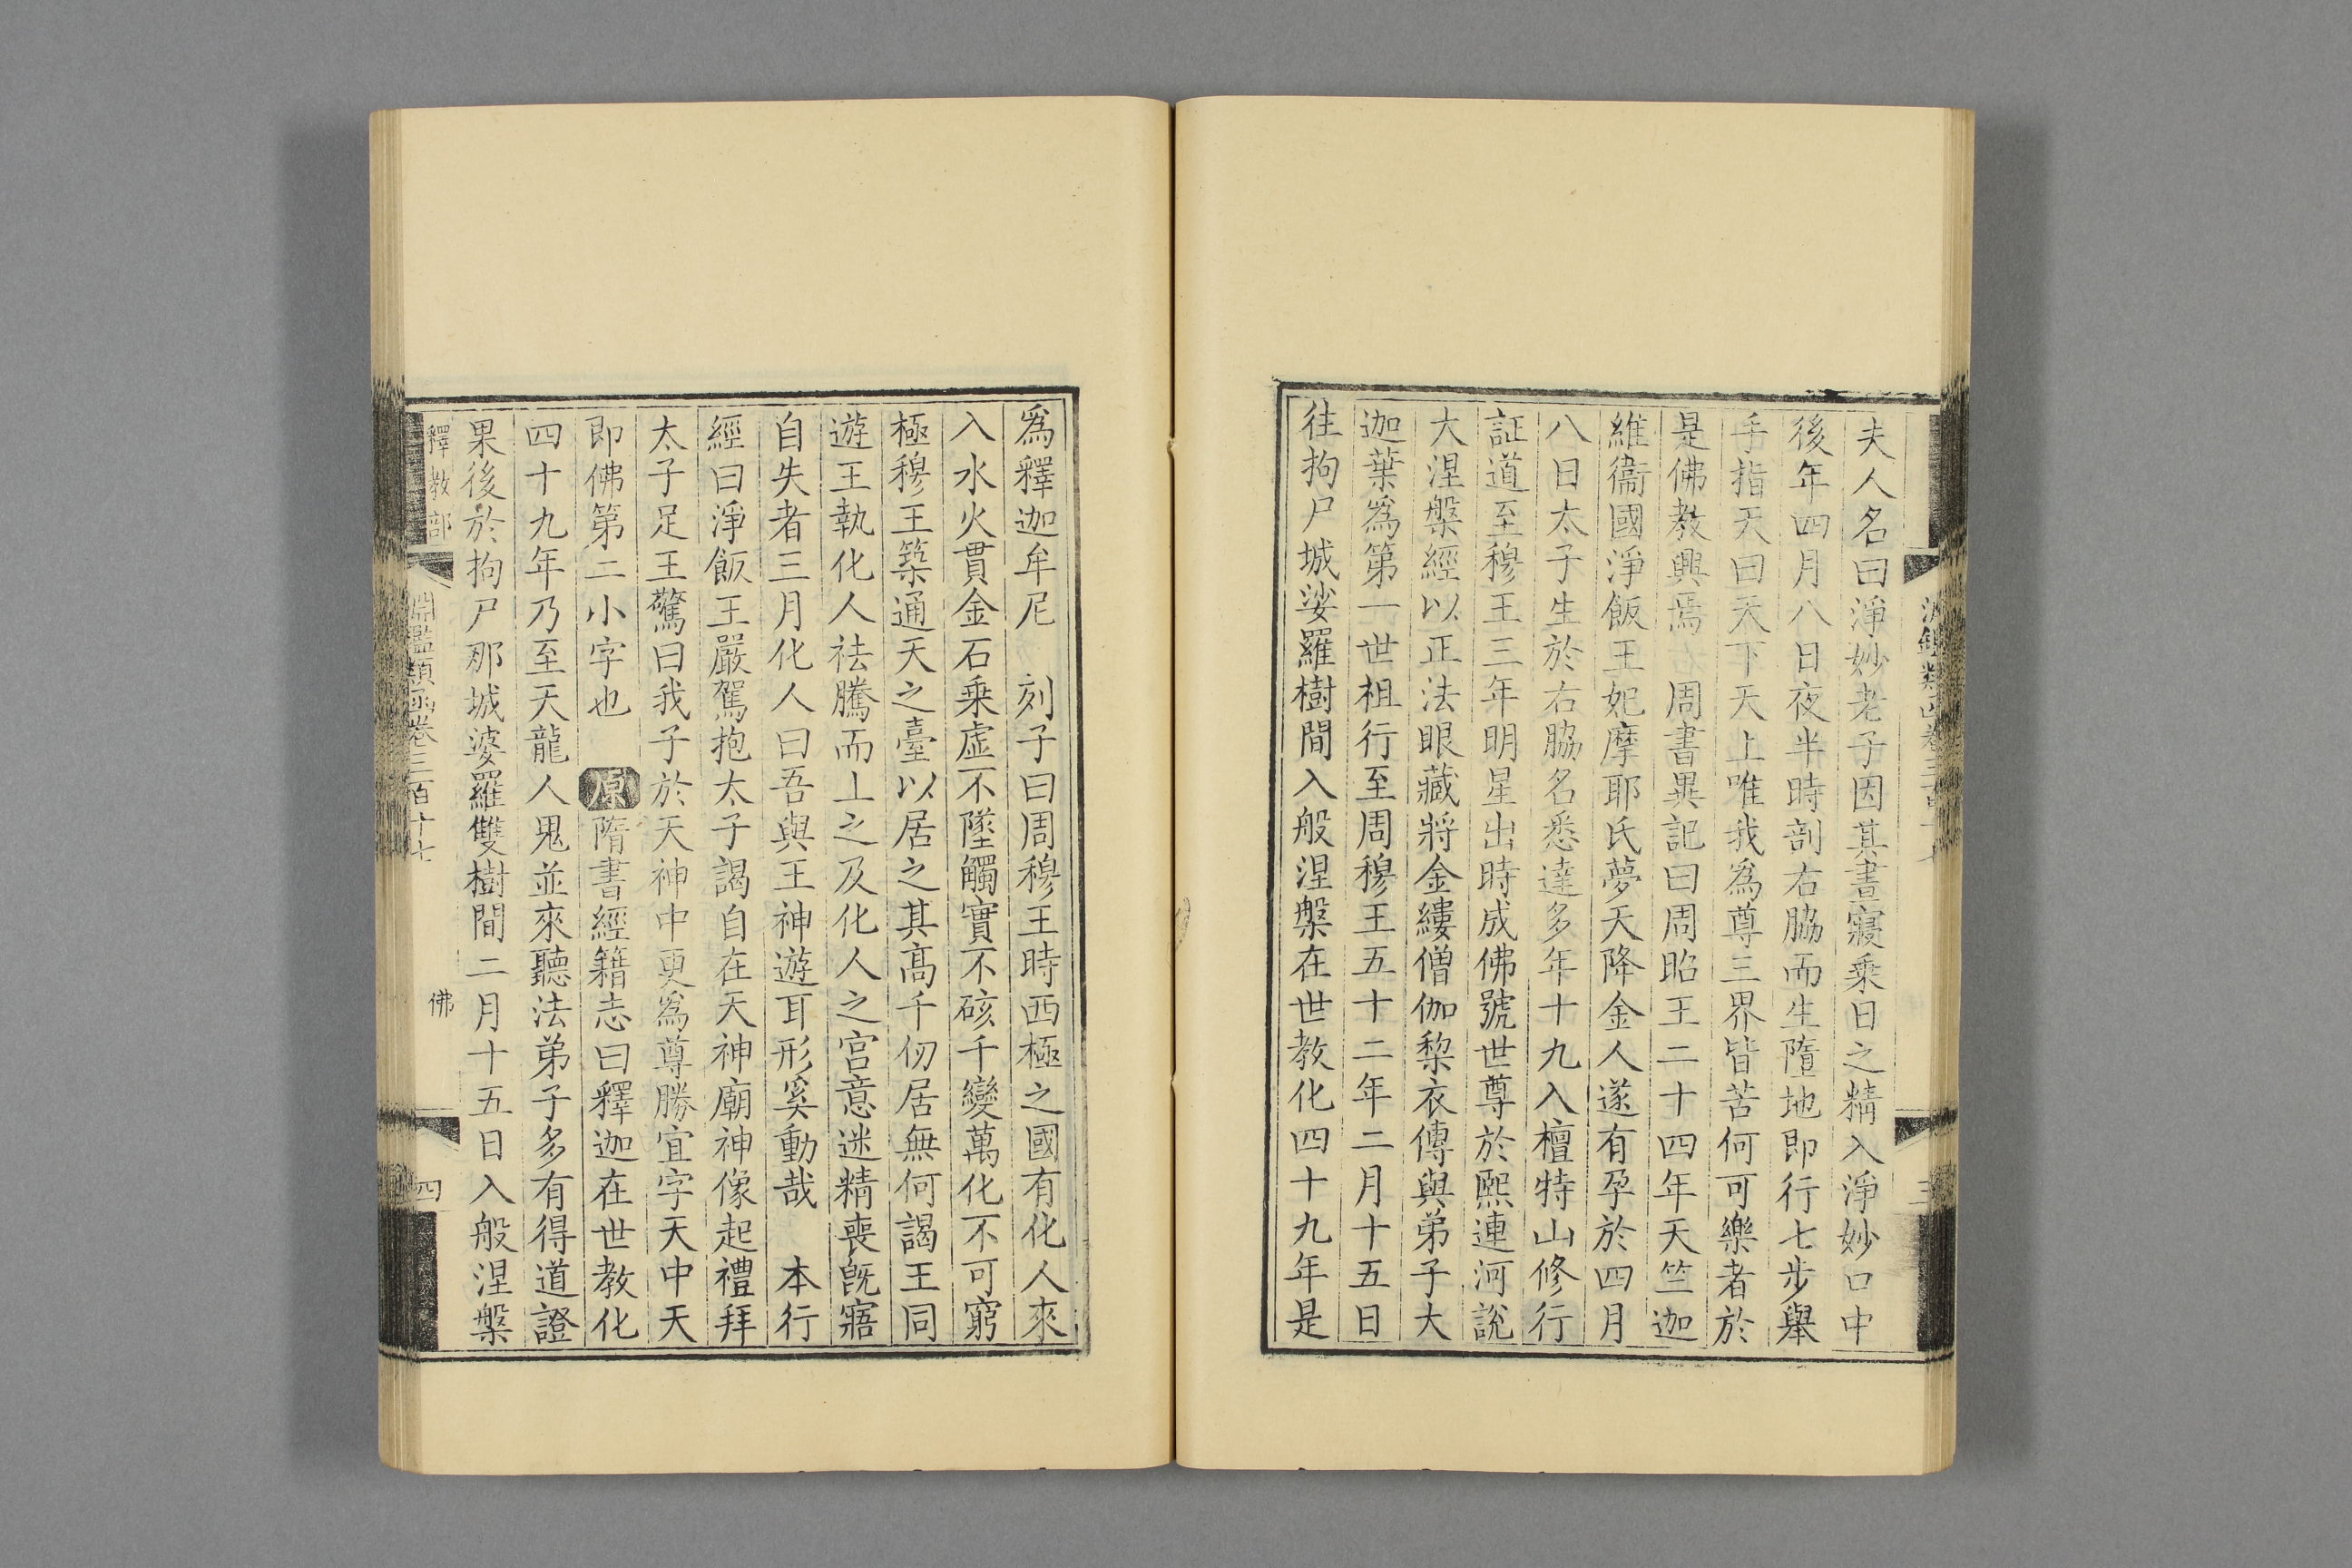 夫人名曰淨妙老子因其晝寢乘日之精入淨妙口中
後年四月八日夜半時剖右脇而生墮地即行七步舉
手指天曰天下天上唯我為尊三界皆苦何可樂者於
是佛教興焉 周書異記曰周昭王二十四年天竺迦
維衞國淨飯王妃摩耶氏夢天降金人遂有孕於四月
八日太子生於右脇名悉達多年十九入檀特山修行
証道至穆王三年明星出時成佛號世尊於熙連河說
大涅槃經以正法眼藏將金縷僧伽棃衣傳與弟子大
迦葉為第一世祖行至周穆王五十二年二月十五日
往拘尸城娑羅樹間入般涅槃在世教化四十九年是
為釋迦牟尼 列子曰周穆王時西極之國有化人來
入水火貫金石乘虛不墜觸實不硋千變萬化不可窮
極穆王築通天之臺以居之其高千仞居無何謁王同
遊王執化人袪騰而上之及化人之宮意迷精喪旣寤
自失者三月化人曰吾與王神遊耳形奚動哉 本行
經曰淨飯王嚴駕抱太子謁自在天神廟神像起禮拜
太子足王驚曰我子於天神中更為尊勝宜字天中天
即佛第二小字也 原隋書經籍志曰釋迦在世教化
四十九年乃至天龍人鬼並來聽法弟子多有得道證
果後於拘尸那城婆羅雙樹間二月十五日入般涅槃
釋教部
淵鑑類函卷三百十七
佛
四